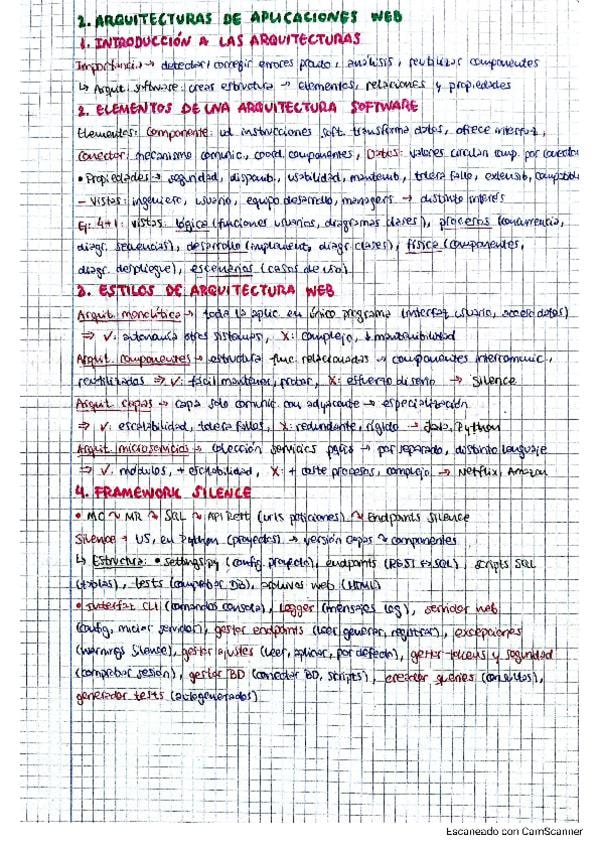 2. ARQUITECTURAS DE APLICACIONES WEB
1. INTRODUCCIÓN A LAS ARQUITECTURAS
Importancia → detectar/corregir errores pronto, análisis, reutilizar componentes
↳ Arquit. software: crear estructura → elementos, relaciones y propiedades
2. ELEMENTOS DE UNA ARQUITECTURA SOFTWARE
Elementos: Componente: ud instrucciones soft. transforma datos, ofrece interfaz,
Conector: mecanismo comunic., coord. componentes, Datos: valores circulan comp. por conector
• Propiedades → seguridad, disponib., usabilidad, mantenib, tolera fallo, extensib, compatibl
– Vistas: ingeniero, usuario, equipo desarrollo, managers → distinto interés
Ej: 4+1: vistas: lógica (funciones usuarios, diagramas clases), procesos (concurrencia,
diagr. secuencias), desarrollo (implement., diagr. clases), física (componentes,
diagr. despliegue), escenarios (casos de uso)
3. ESTILOS DE ARQUITECTURA WEB
Arquit. monolítica → toda la aplic. en único programa (interfaz usuario, acceso datos)
⇒ V: autonomía otros sistemas, X: complejo, ↓ mantenibilidad
Arquit. componentes → estructura func. relacionadas → componentes intercomunic.,
reutilizados ⇒ V: fácil mantener, probar, X: esfuerzo diseño → Silence
Arquit. capas → capa solo comunic. con adyacente → especialización
⇒ V: escalabilidad, tolera fallos, X: redundante, rígido → Java, Python
Arquit. microservicios → colección servicios pqños → por separado, distinto lenguaje
⇒ V: módulos, + escalabilidad, X: + coste procesos, complejo → Netflix, Amazon
4. FRAMEWORK SILENCE
• MC ↝ MR ↝ SQL ↝ API Rest (urls peticiones) ↝ Endpoints Silence
Silence → US, en Python (proyectos) → versión capas ~ componentes
↳ Estructura: • settings.py (config. proyecto), endpoints (REST ↔ SQL), scripts SQL
(tablas), tests (comprobar DB), archivos web (HTML)
• Interfaz CLI (comandos consola), Logger (mensajes log), servidor web
(config, iniciar servidor), gestor endpoints (leer, generar, registrar), excepciones
(warnings Silence), gestor ajustes (leer, aplicar, por defecto), gestor tokens y seguridad
(comprobar sesión), gestor BD (conectar BD, scripts), creador queries (consultas),
generador tests (autogenerados)
Escaneado con CamScanner